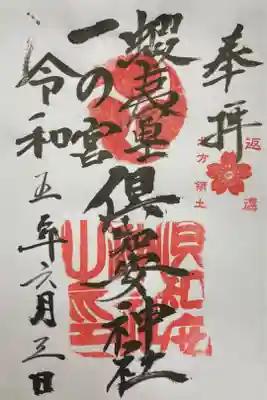 奉拝
返還
北方領土
蝦夷富士
一の宮
倶知安神社
令和五年六月三日